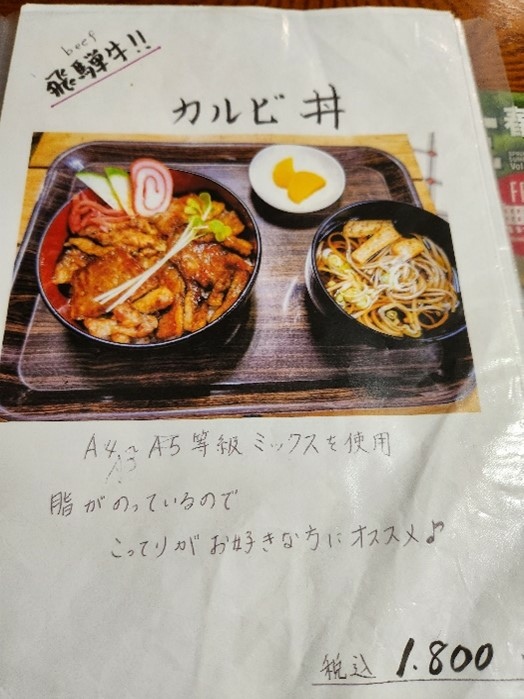 beef
飛騨牛!!
カルビ丼
A5等級ミックスを使用
脂がのっているので
こってりがお好きな方にオススメ♪
税込 1.800
春